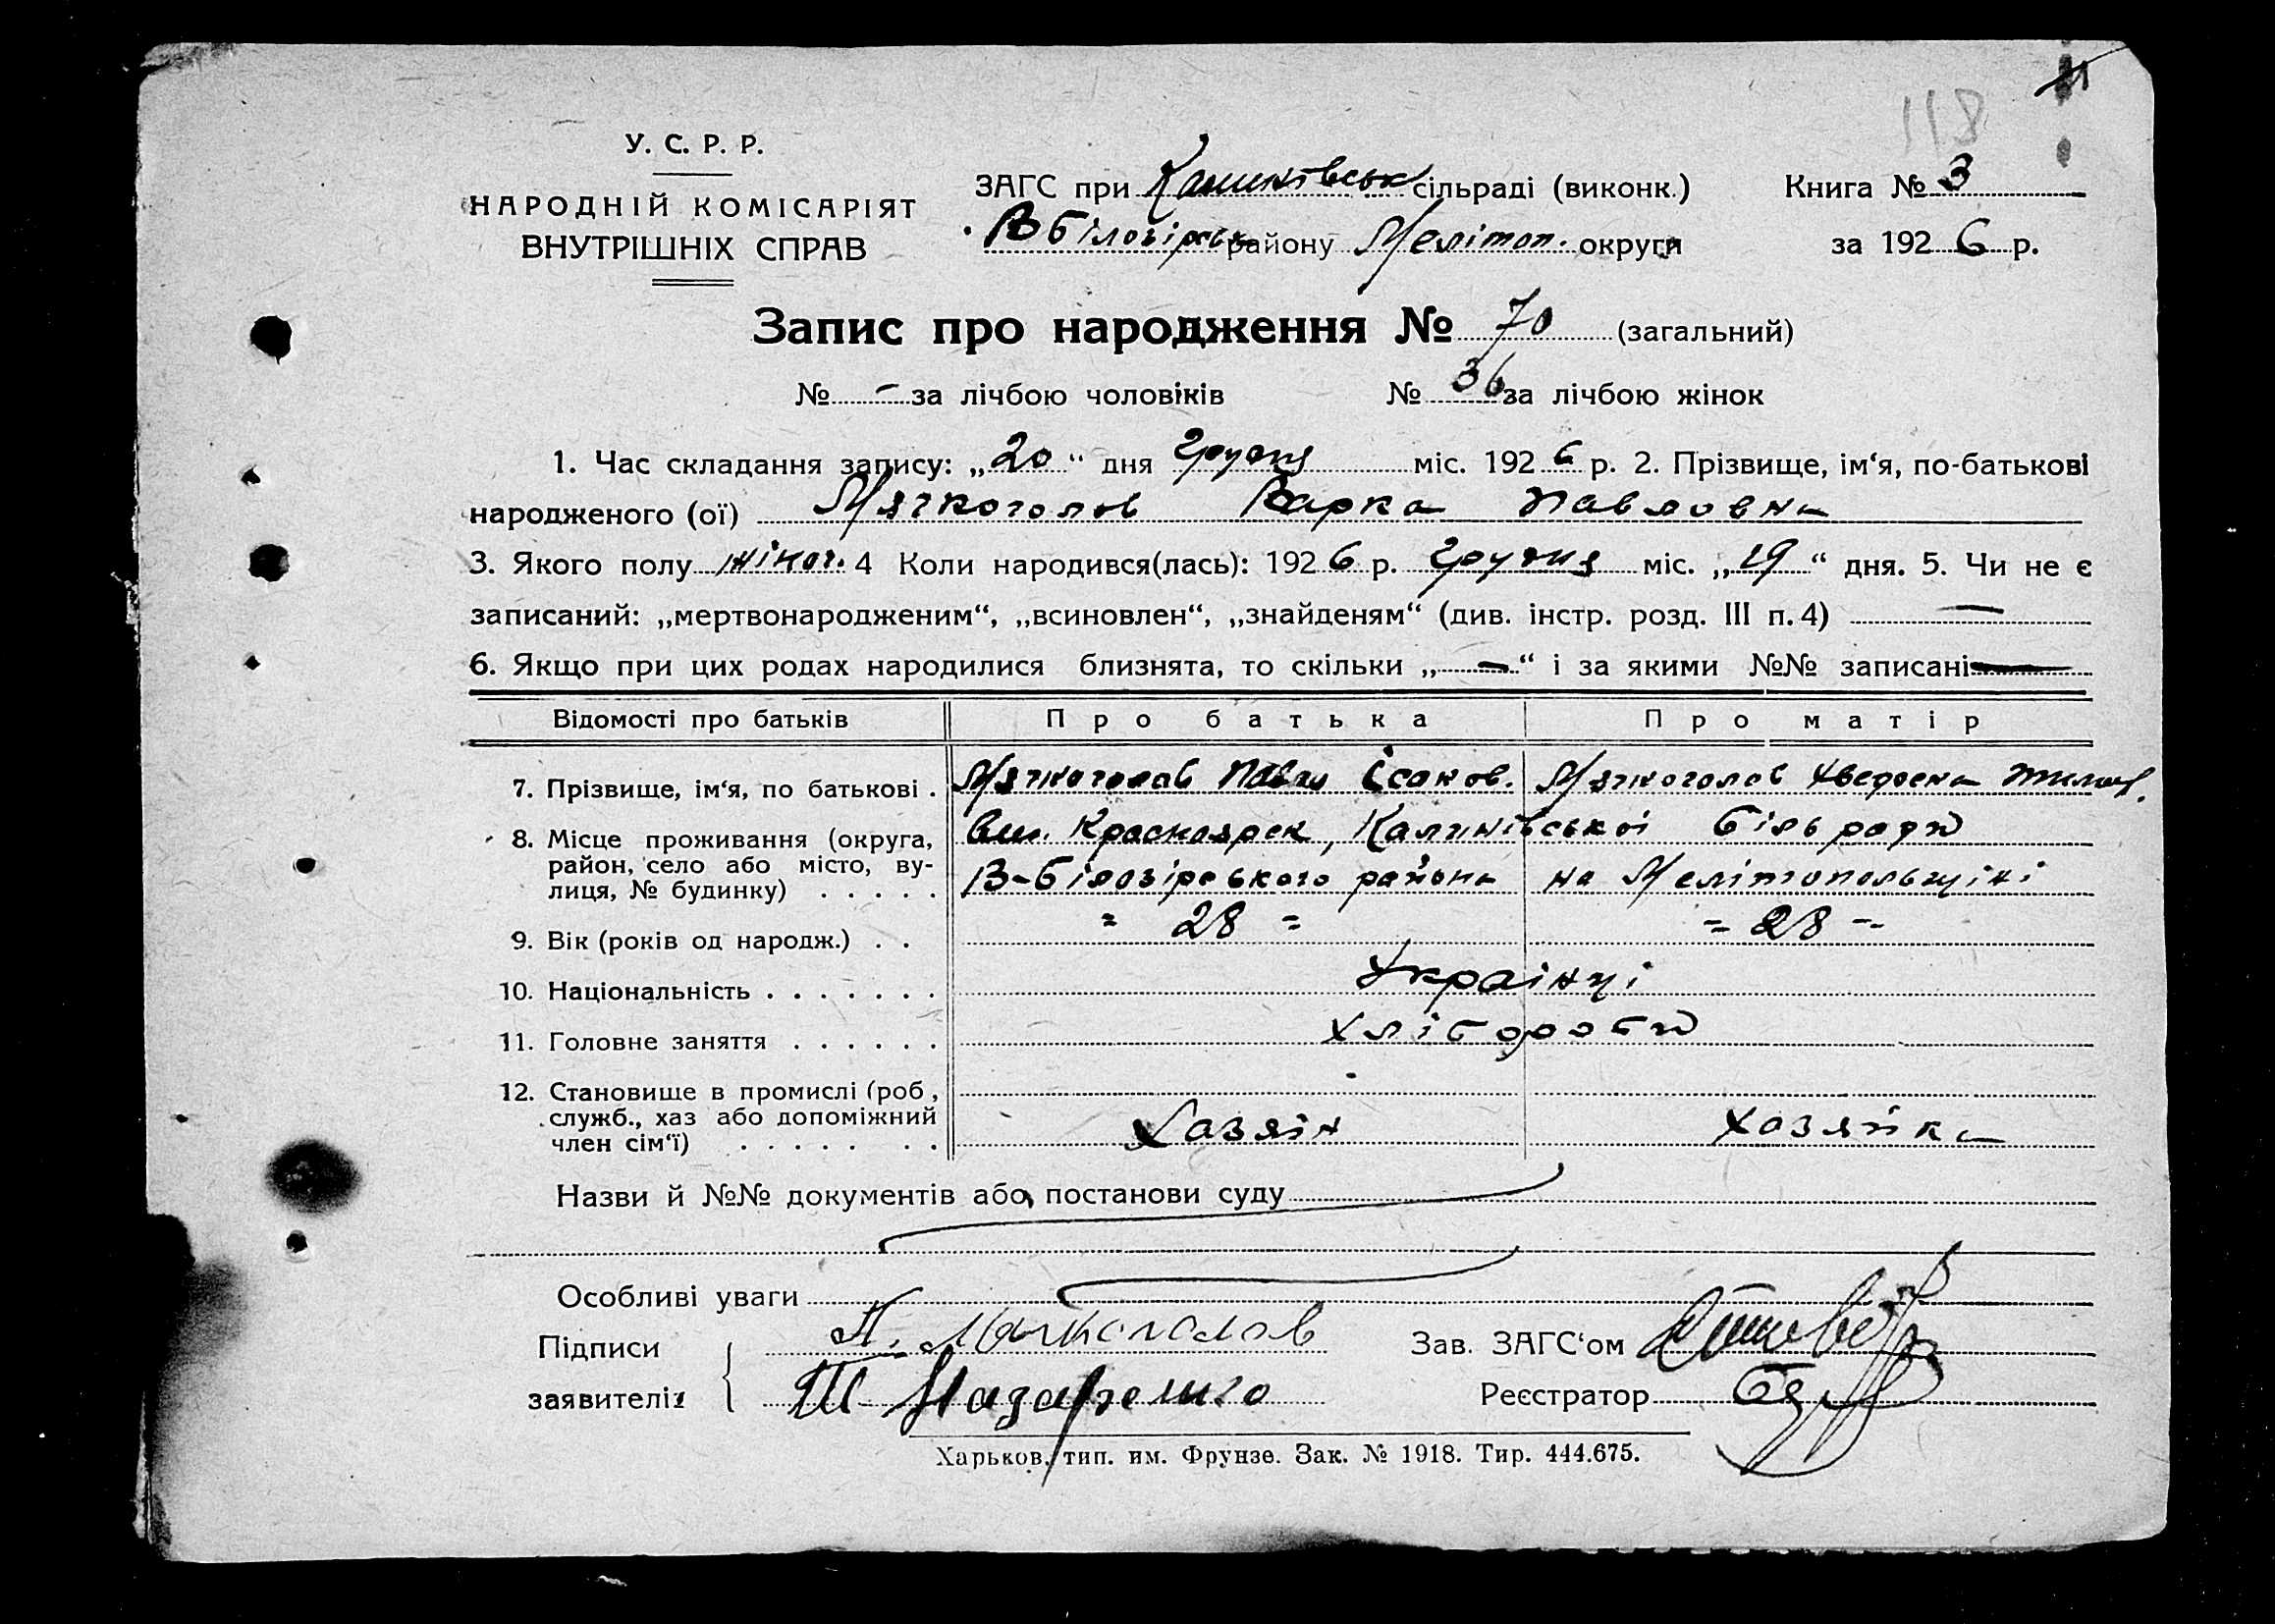 118
У. С. Р. Р.
НАРОДНІЙ КОМІСАРІЯТ
ВНУТРІШНІХ СПРАВ
ЗАГС при Калинівськ сільраді (виконк.) Книга № 3
В Білозірськ району Мелітоп. округи за 1926 р.
Запис про народження № 70 (загальний)
№ - за лічбою чоловіків № 36 за лічбою жінок
1. Час складання запису: „20“ дня Грудня міс. 1926 р. 2. Прізвище, ім‘я, по-батькові
народженого (ої) Мячкоголов Варка Павловна
3. Якого полу жіноч. 4 Коли народився(лась): 1926 р. Грудня міс. „19“ дня. 5. Чи не є
записаний: „мертвонародженим“, „всиновлен“, „знайденям“ (див. інстр. розд. III п. 4) —
6. Якщо при цих родах народилися близнята, то скільки „—“ і за якими №№ записані —
Відомості про батьків Про батька Про матір
7. Прізвище, ім‘я, по батькові . Мячкоголов Павло Ісаков. Мячкоголов
8. Місце проживання (округа, район, село або місто, вулиця, № будинку) . . . . .
Красноярск, Калинівської Сільради
В-Білозірського района на Мелітопольщіні
9. Вік (років од народж.) . . = 28 = = 28 =
10. Національність . . . . . . . Українці
11. Головне заняття . . . . . . Хлібороби
12. Становище в промислі (роб, служб., хаз або допоміжний член сім‘ї) . . . . . . . Хазяін Хазяйка
Назви й №№ документів або постанови суду
Особливі уваги
Підписи П. Мячкоголов Зав. ЗАГС‘ом
заявителів Назаренко Реєстратор
Харьков, тип. им. Фрунзе. Зак. № 1918. Тир. 444.675.